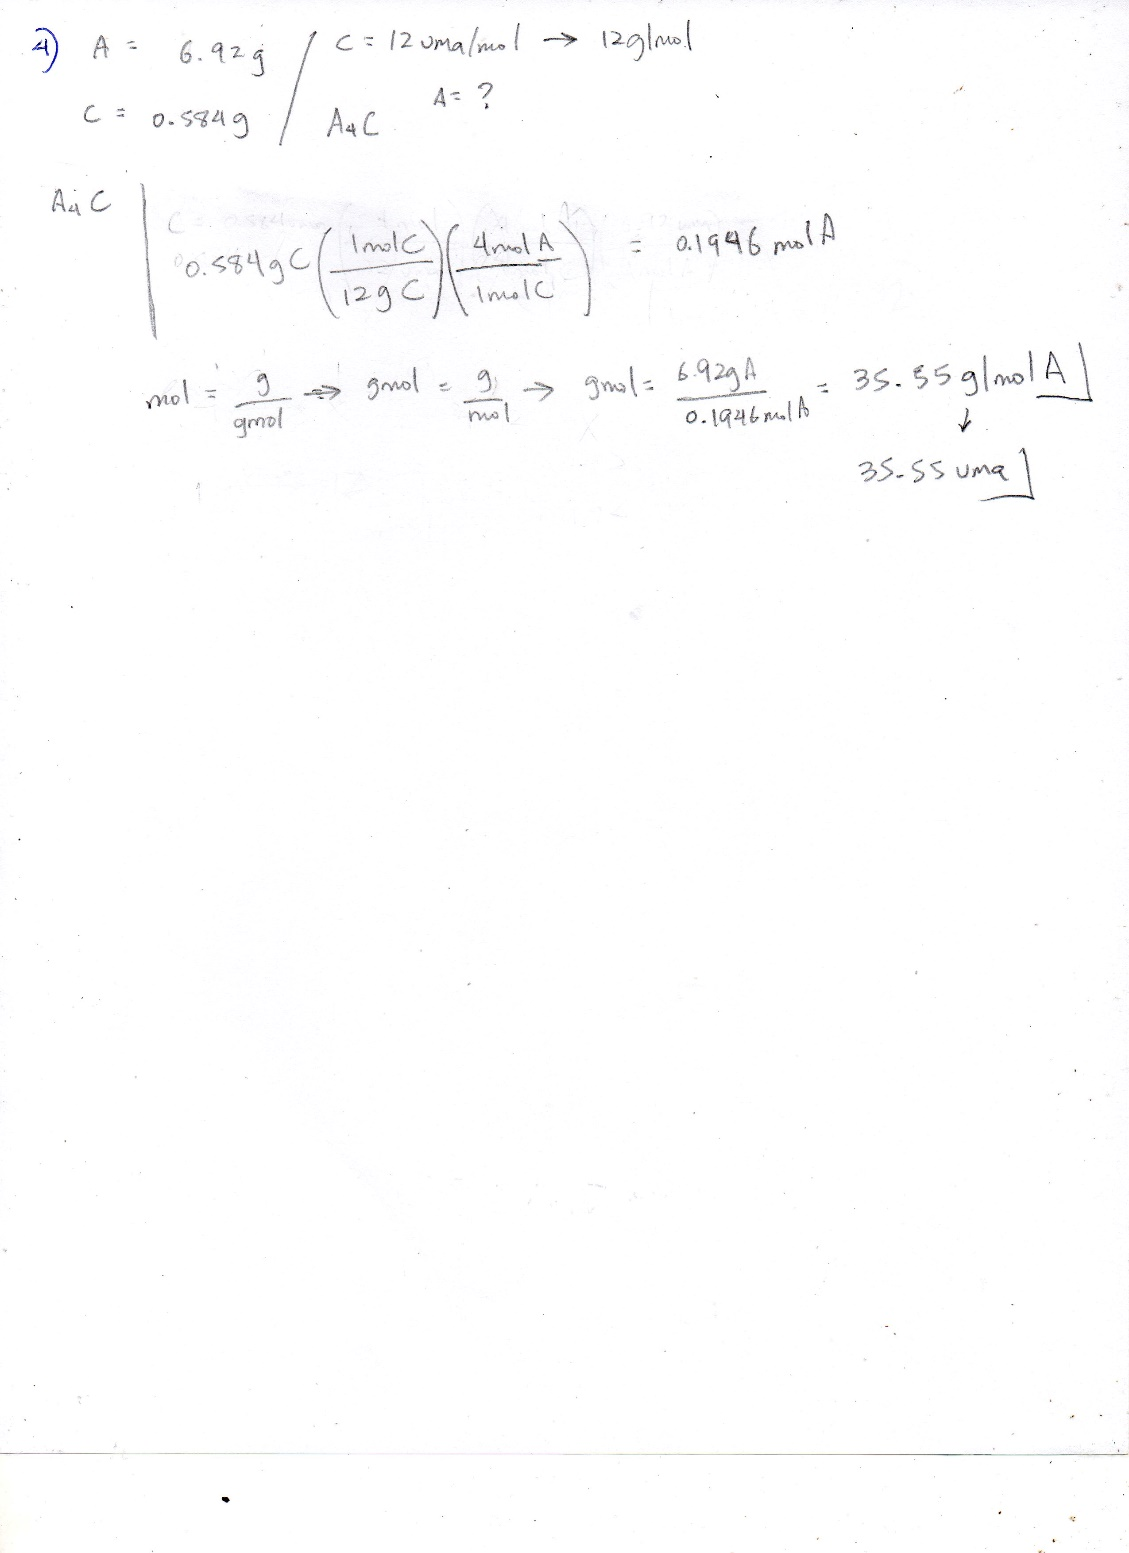 4) A = 6.92g / C = 12 uma/mol → 12g/mol
C = 0.584g / A₄C A= ?
A₄C | 0.584gC (1molC / 12gC) (4molA / 1molC) = 0.1946 molA
mol = g/gmol → gmol = g/mol → gmol = 6.92gA / 0.1946molA = 35.55 g/molA
↓
35.55 uma